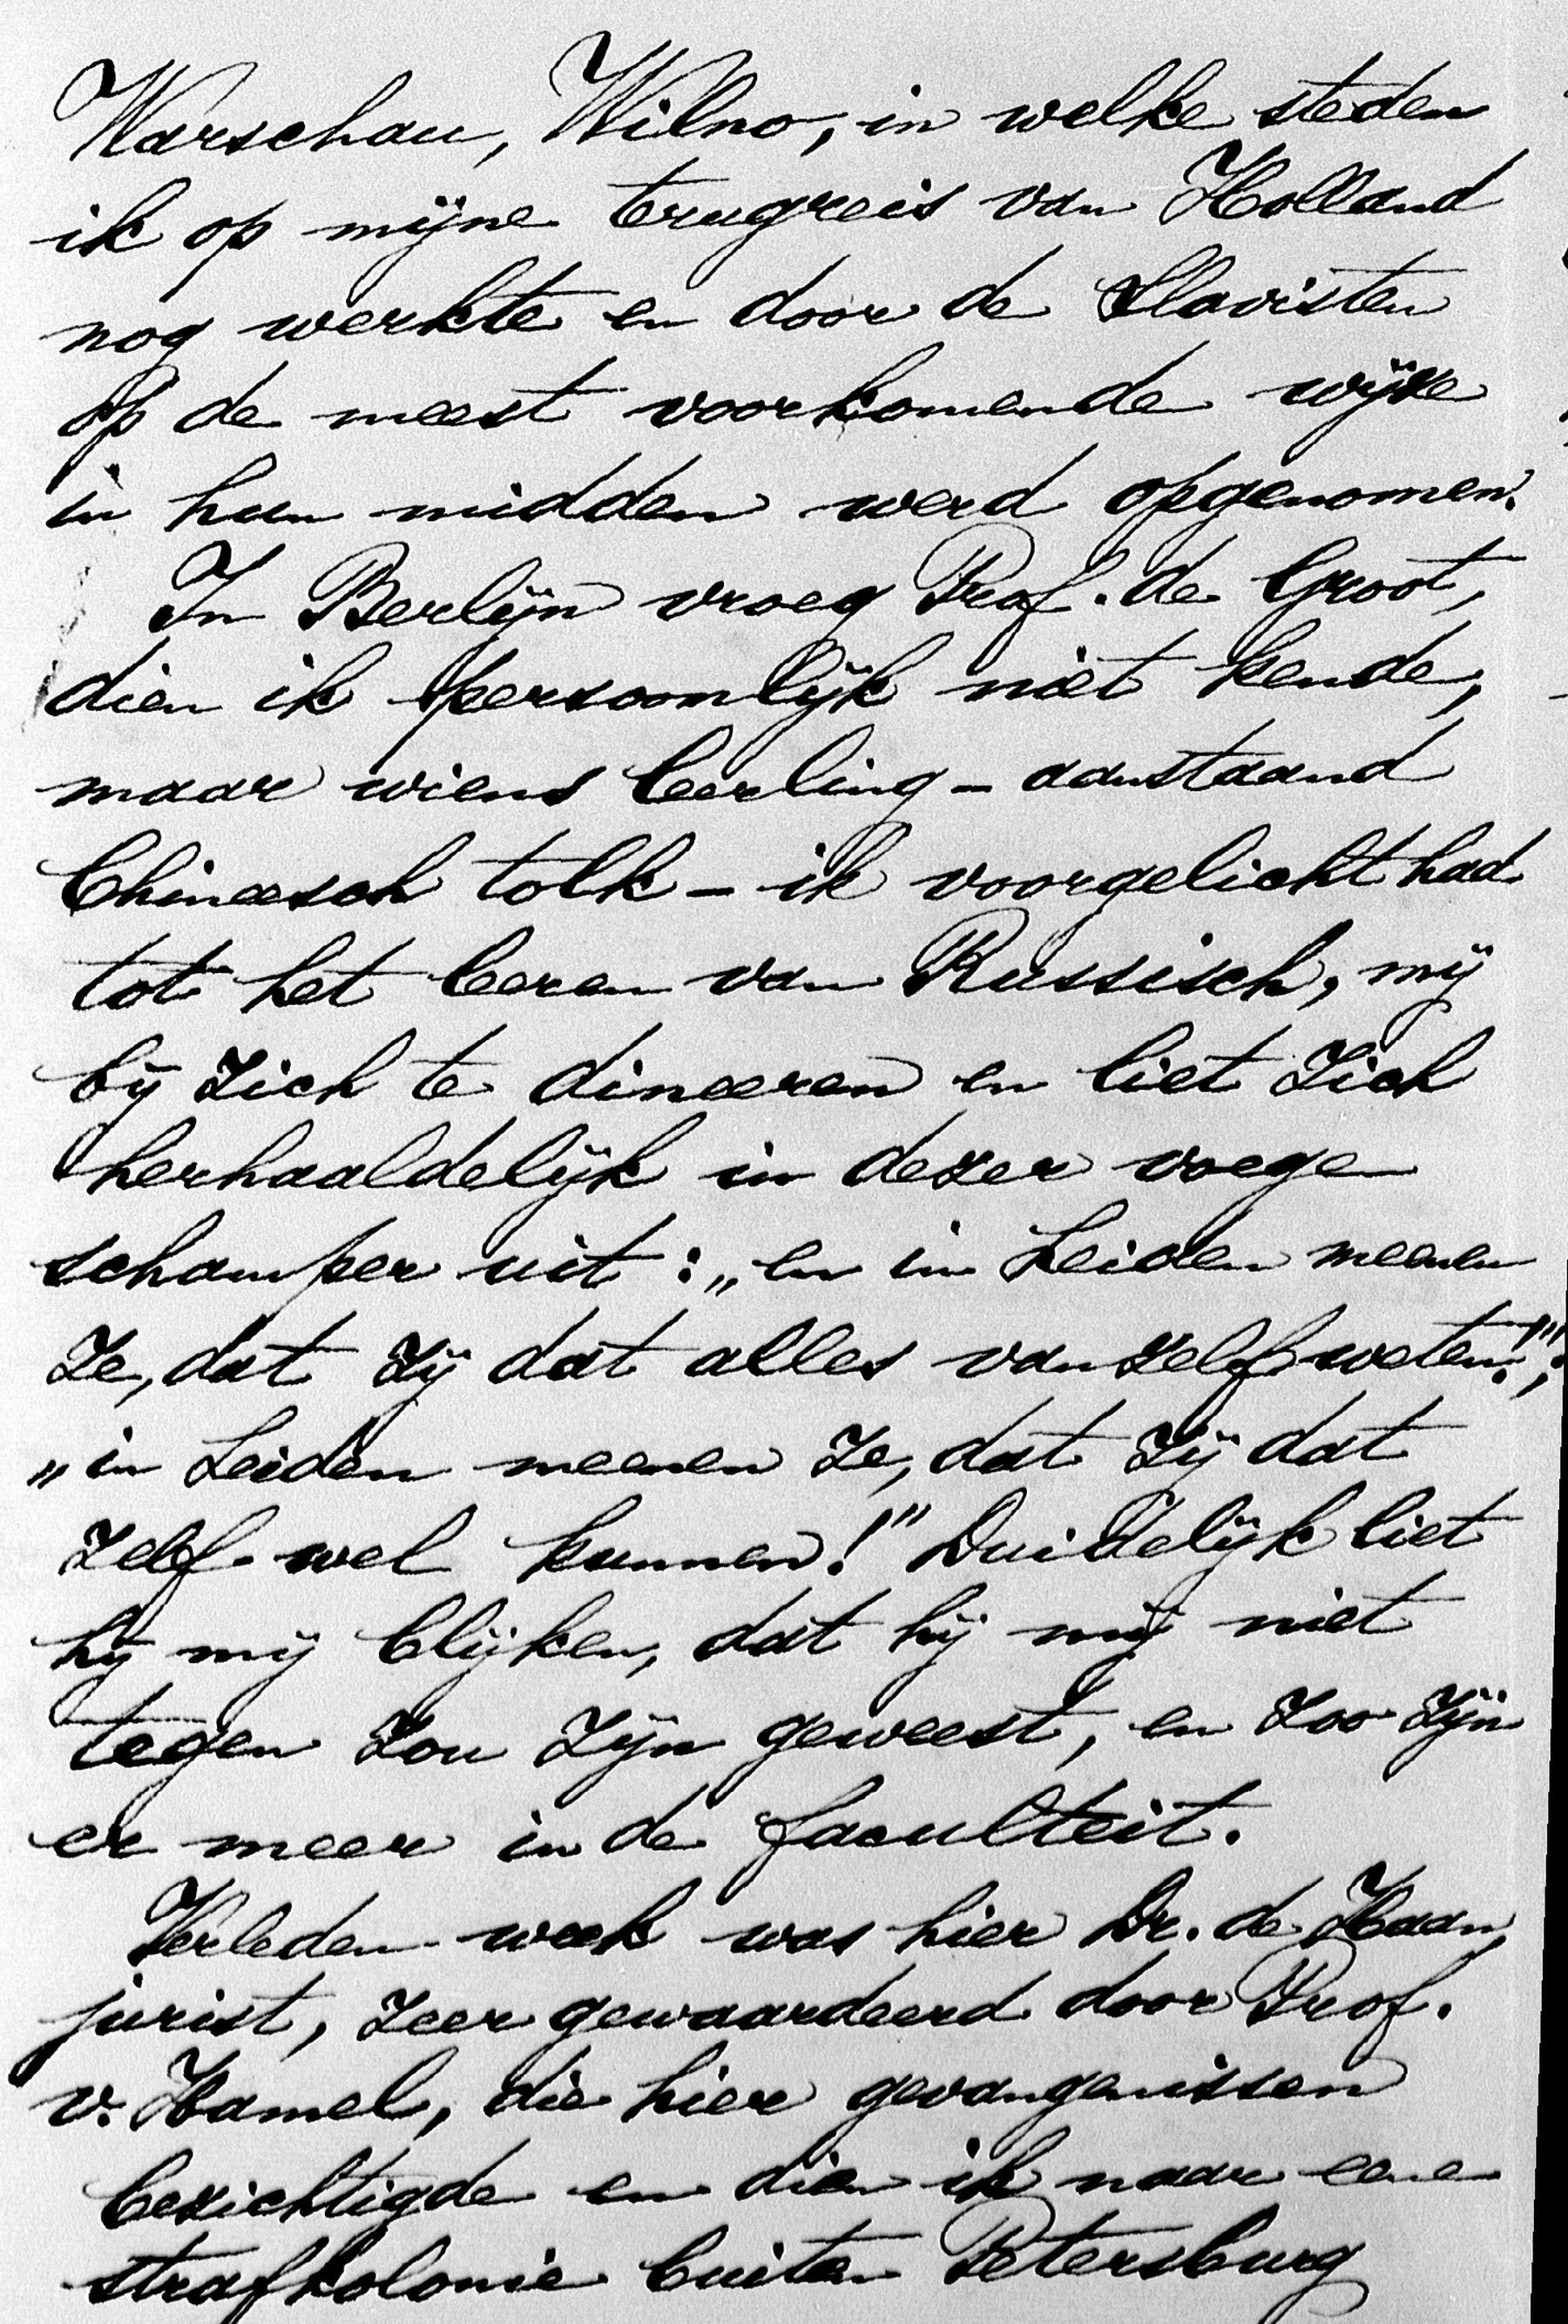 Warschau, Wilno, in welke steden
ik op mijne terugreis van Holland
nog werkte en door de Slavisten
op de meest voorkomende wijze
in hun midden werd opgenomen.
In Berlijn vroeg Prof. de Groot,
dien ik persoonlijk niet kende,
maar wiens leerling – aanstaand
Chineesch tolk – ik voorgelicht had
tot het leeren van Russisch, mij
bij zich te dineeren en liet zich
herhaaldelijk in dezer voege
schamper uit: „en in Leiden meenen
ze, dat zij dat alles vanzelf weten!”;
„in Leiden meenen ze, dat zij dat
zelf wel kunnen!” Duidelijk liet
hij mij blijken, dat hij mij niet
tegen zou zijn geweest, en zoo zijn
er meer in de faculteit.
Verleden week was hier Dr. de Haan,
jurist, zeer gewaardeerd door Prof.
v. Hamel, die hier gevangenissen
bezichtigde en dien ik naar eene
strafkolonie buiten Petersburg